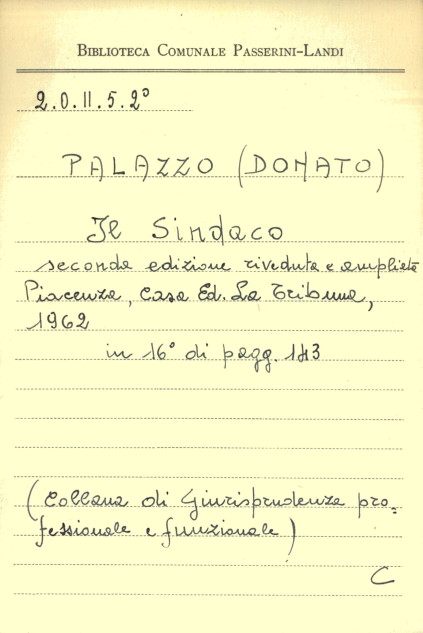 BIBLIOTECA COMUNALE PASSERINI-LANDI
2.0.II.5.2°
PALAZZO (DONATO)
Il Sindaco
seconda edizione riveduta e ampliata
Piacenza, Casa Ed. La Tribuna,
1962
in 16° di pagg. 143
(Collana di Giurisprudenza pro=
fessionale e funzionale)
C